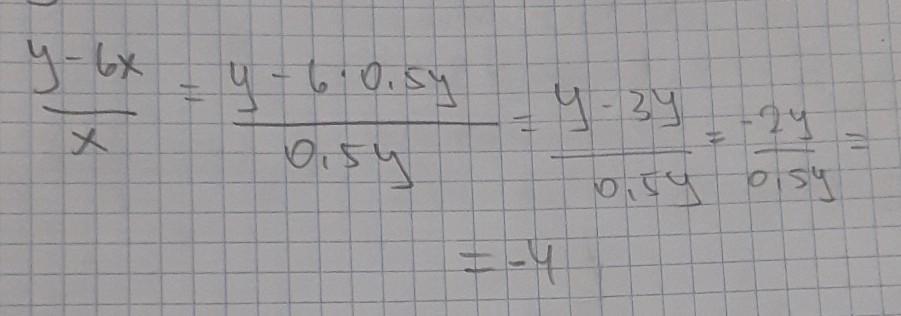 (y - 6x)/x = (y - 6 · 0,5y)/(0,5y) = (y - 3y)/(0,5y) = (-2y)/(0,5y) =
= -4